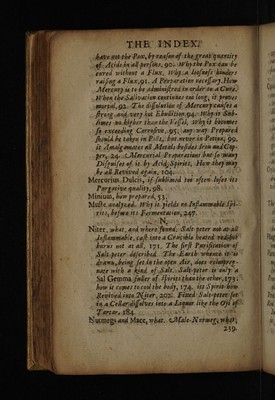 THE INDEX.
have not the Pox, by reason of the great quantity
of Acids in all persons, 90. Why the Pox can be
cured without a Flux. Why a loosness hinders
raising a Flux, 91. A Preparation necessary. How
Mercury is to be administred in order to a Cure.
When the Salivation continues too long, it proves
mortal, 92. The dissolution of Mercury causes a
strong and very hot Ebullition, 94. Why it sublimes
no higher than the Vessel. Why it becomes
so exceeding Corrosive, 95. any way Prepared
should be taken in Pills, but never in Potion, 99.
it Amalgamates all Metals besides Iron and Copper,
24. Mercurial Preparations but so many
Disguises of it by Acid Spirits, How they may
be all Revived again, 104.
Mercurius Dulcis, if sublimed too often loses its
Purgative quality, 98.
Minium, how prepared, 53.
Muste analyzed. Why it yields no Inflammable Spirits,
before its Fermentation, 247.
N.
Niter, what, and where found. Salt-peter not at all
Inflammable, cast into a Crucible heated red-hot
burns not at all, 171. The first Purification of
Salt-peter described. The Earth whence it is
drawn, being set in the open Air, does reimpregnate
with a kind of Salt. Salt-peter is only a
Sal Gemma, fuller of Spirits than the other, 173.
how it comes to cool the body, 174. its Spirit how
Revived into Niter, 202. Fixed Salt-peter set
in a Cellar dissolves into a Liquor like the Oyl of
Tartar, 184.
Nutmegs and Mace, what. Male-Nutmeg, what,
239.